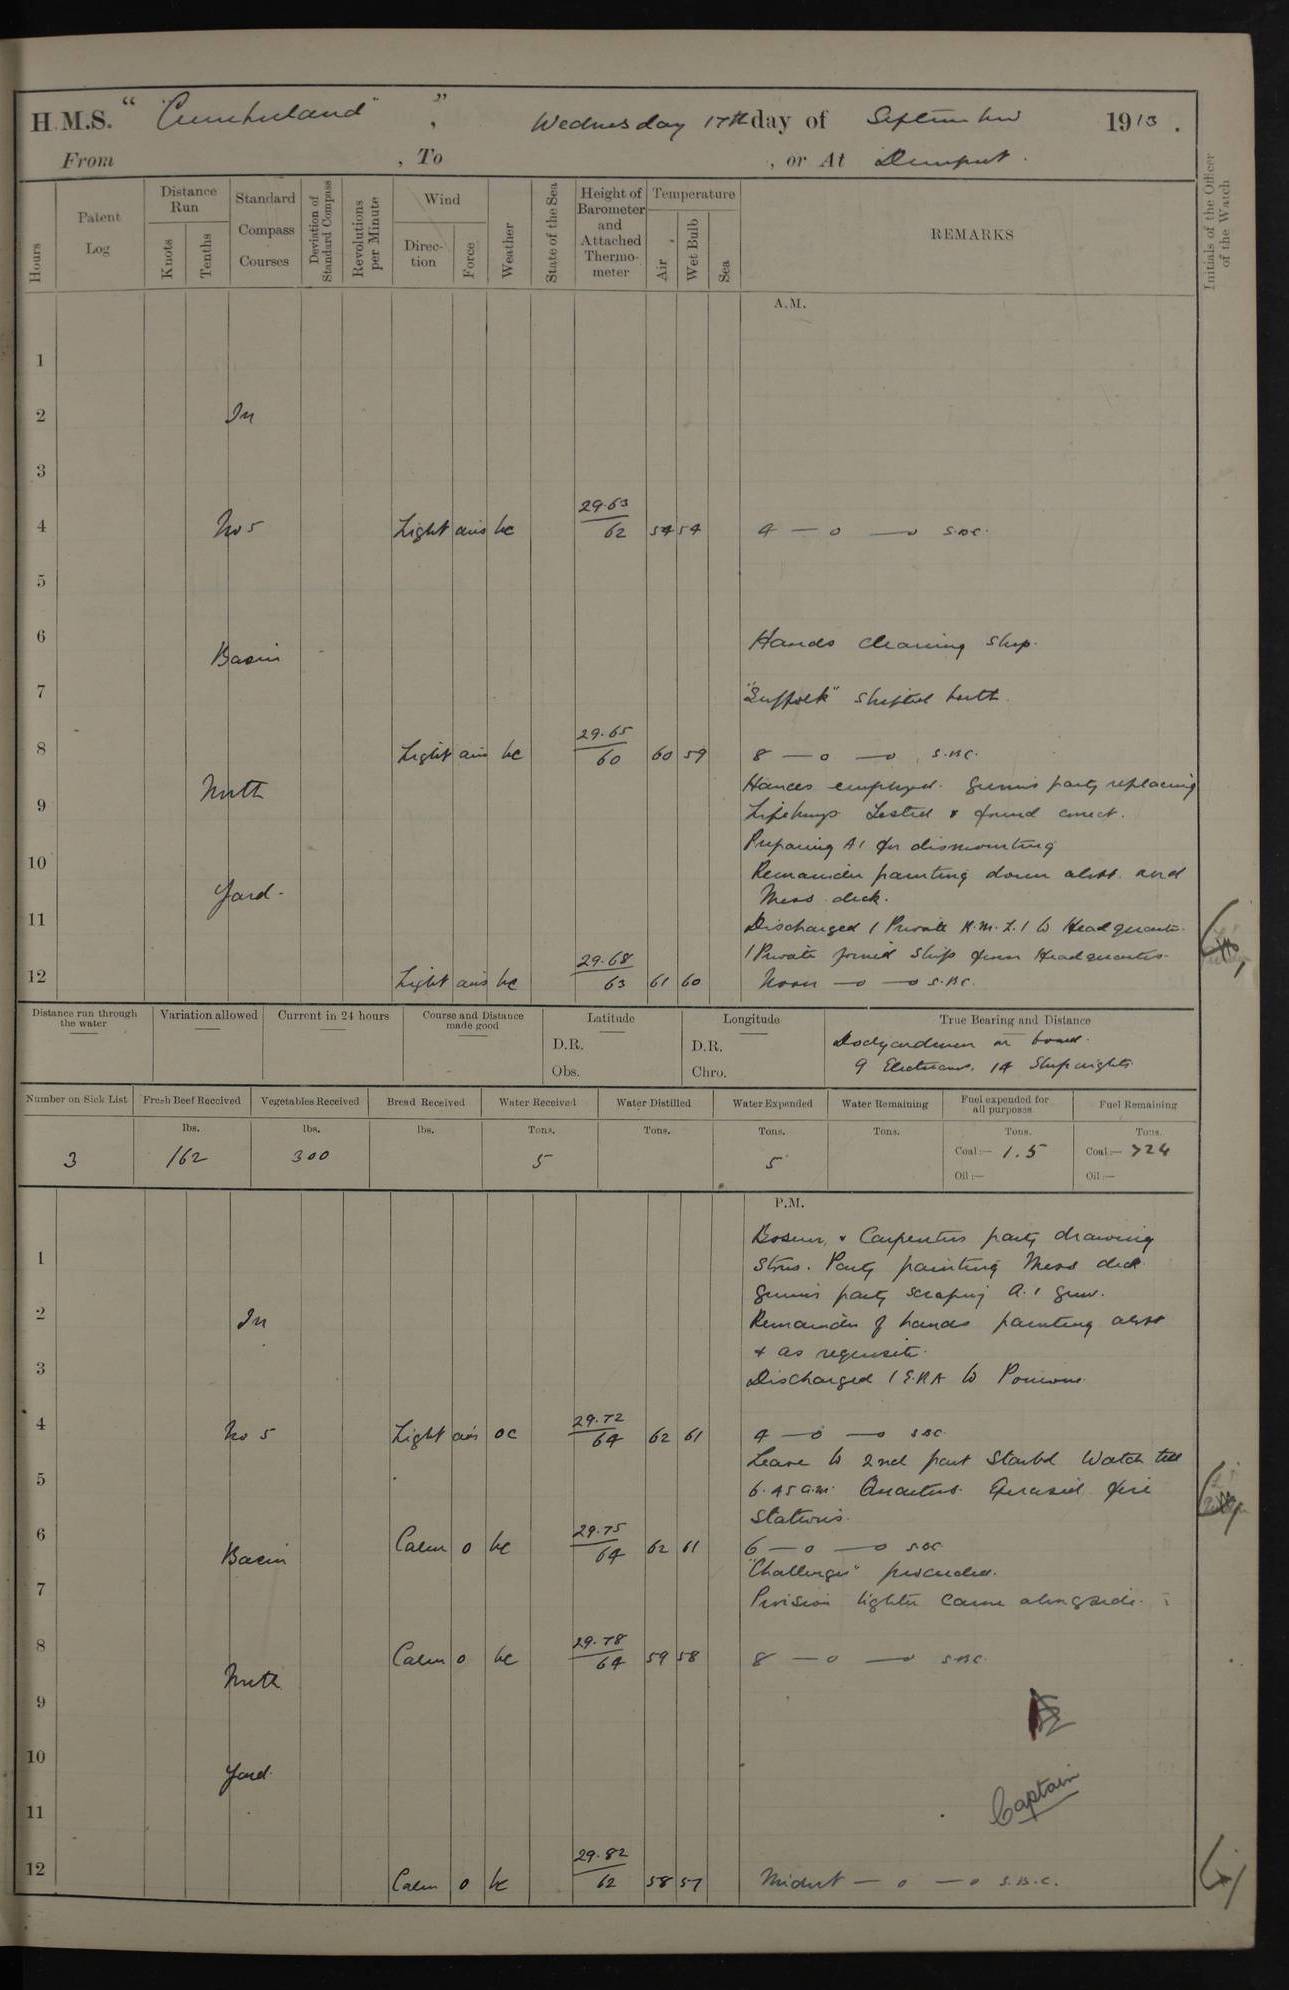 H.M.S. " "Cumberland" ", Wednesday 17th day of September 1913.
From , To , or At Devonport.
Hours
Patent Log
Distance Run
Knots
Tenths
Standard Compass Courses
Deviation of Standard Compass
Revolutions per Minute
Wind
Direction
Force
Weather
State of the Sea
Height of Barometer and Attached Thermometer
Temperature
Air
Wet Bulb
Sea
REMARKS
Initials of the Officer of the Watch
A.M.
1
2 In
3
4 No 5 Light airs bc 29.63 62 54 54 4 — o — o S.B.C.
5
6 Basin Hands cleaning ship.
7 "Suffolk" shifted berth.
8 Light airs bc 29.65 60 60 59 8 — o — o S.B.C.
North Hands employed. Gunners party replacing
9 Lifebuoys Tested & found correct.
Preparing A1 for dismounting
10 Remainder painting down aloft and
Yard. Mess deck.
11 Discharged 1 Private R.M.L.I to Headquarters.
1 Private joined ship from Headquarters.
12 Light airs bc 29.68 63 61 60 Noon — o — o S.B.C.
Distance run through the water
Variation allowed
Current in 24 hours
Course and Distance made good
Latitude
D.R.
Obs.
Longitude
D.R.
Chro.
True Bearing and Distance
Dockyardmen on board.
9 Electricians. 14 Shipwrights
Number on Sick List
3
Fresh Beef Received
lbs.
162
Vegetables Received
lbs.
300
Bread Received
lbs.
Water Received
Tons.
5
Water Distilled
Tons.
Water Expended
Tons.
5
Water Remaining
Tons.
Fuel expended for all purposes
Tons.
Coal:— 1.5
Oil:—
Fuel Remaining
Tons.
Coal:— 724
Oil:—
P.M.
Bosuns & Carpenters party drawing
1 Stores. Party painting Mess deck
Gunners party scraping A.1 gun.
2 In Remainder of hands painting aloft
& as requisite.
3 Discharged 1 E.R.A to Pomone.
4 No 5 Light airs oc 29.72 64 62 61 4 — o — o S.B.C.
Leave to 2nd part Starbd Watch till
5 6.45 a.m. Quarters. Exercised fire
Stations.
6 Basin Calm 0 bc 29.75 64 62 61 6 — o — o S.B.C.
"Challenger" proceeded.
7 Provision lighter came alongside.
8 Calm 0 bc 29.78 64 59 58 8 — o — o S.B.C.
North
9
10 Yard.
11 Captain
12 Calm 0 bc 29.82 62 58 57 Midnt — o — o S.B.C.